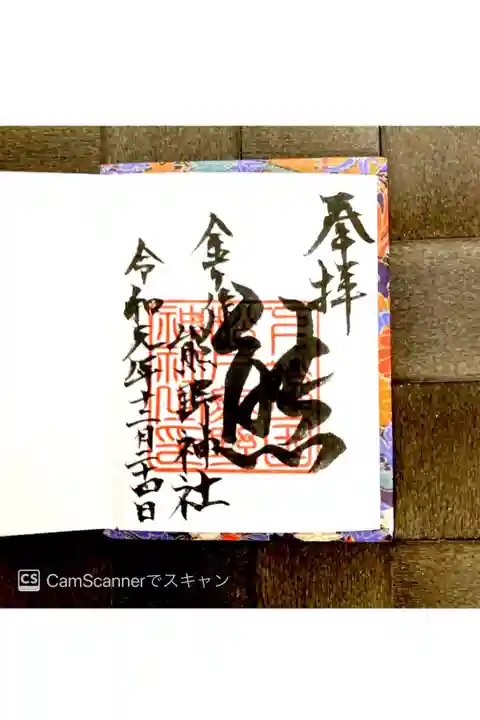 奉拝
熊
金ヶ作熊野神社
令和元年十一月二十四日
CS CamScannerでスキャン